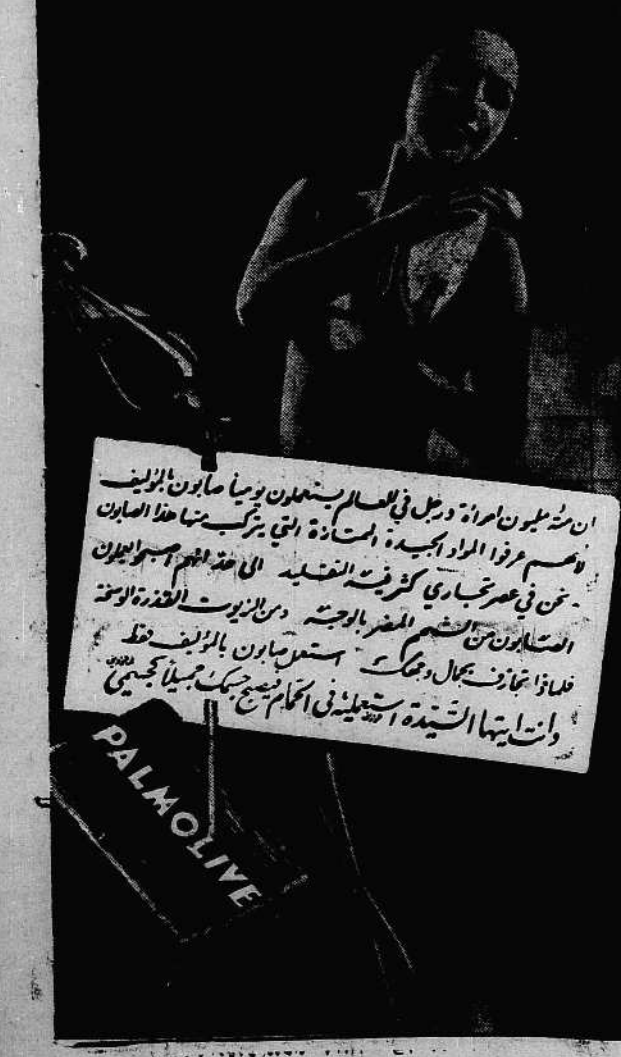 ان مئة مليون امرأة ورجل في العالم يستعملون يومياً صابون بالمؤليف
لانهم عرفوا المواد الجيدة الممتازة التي يتركب منها هذا الصابون
نحن في عصر تجاري كثر فيه التقليد الى حد انهم اصبحوا يعملون
الصابون من الشحم المضر بالوجه ومن الزيوت القذرة الوسخة
فلماذا تجازف بجمال وجهك استعمل صابون بالمؤليف فقط
وانت ايتها السيدة استعمليه في الحمام فيصبح جسمك جميلاً كجسمي
PALMOLIVE